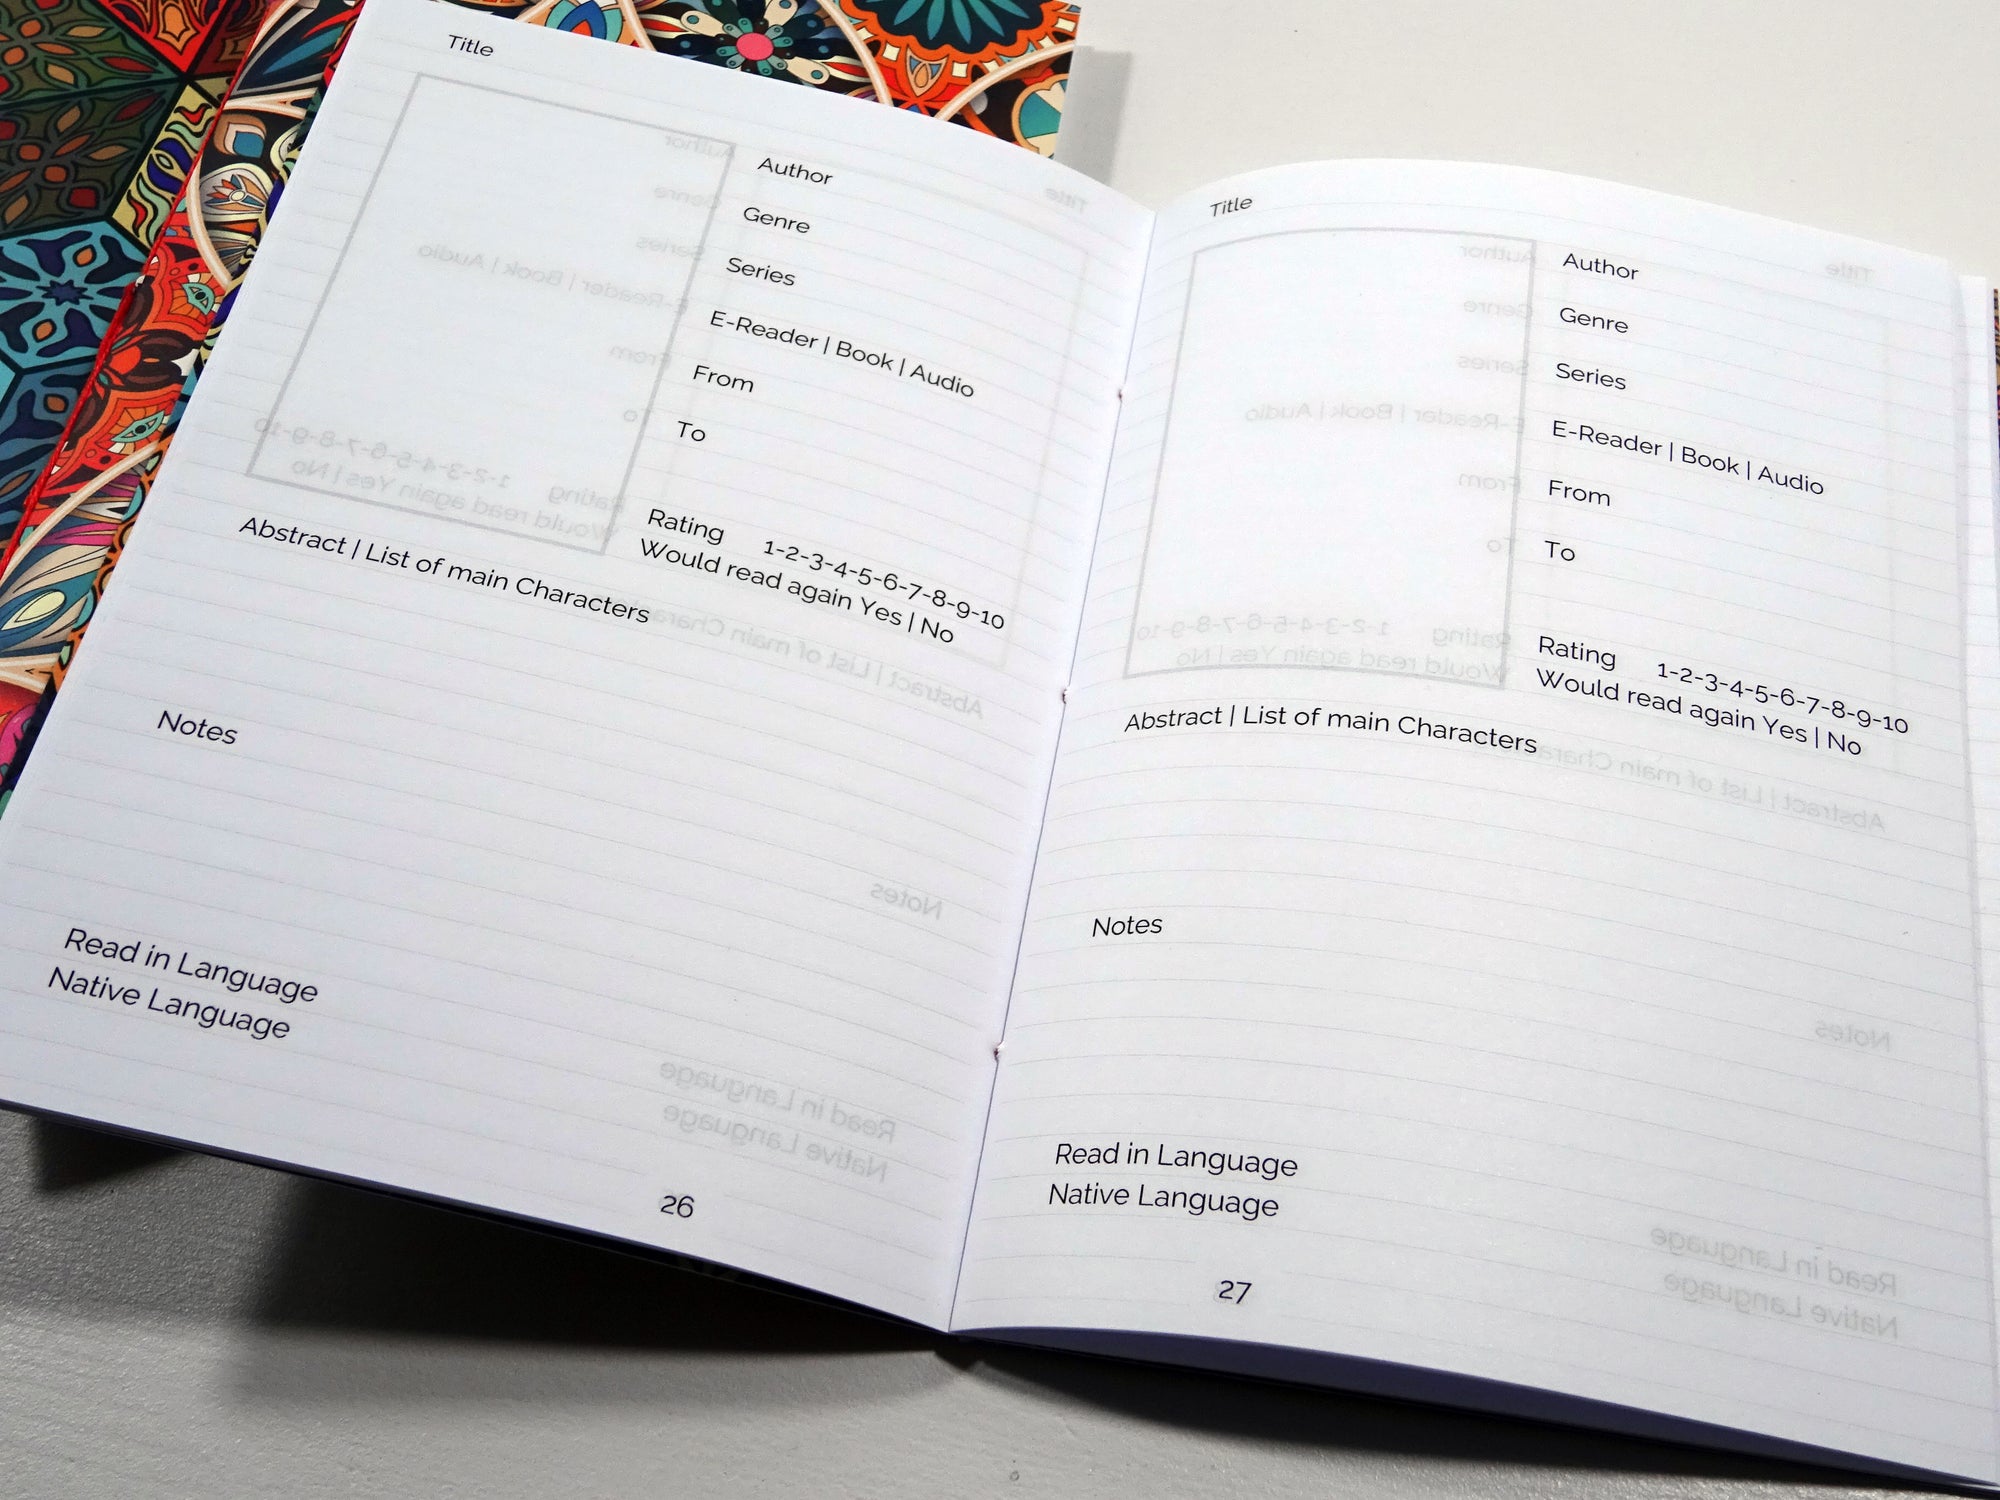 Title
Author
Genre
Series
E-Reader | Book | Audio
From
To
Rating 1-2-3-4-5-6-7-8-9-10
Would read again Yes | No
Abstract | List of main Characters
Notes
Read in Language
Native Language
26
Title
Author
Genre
Series
E-Reader | Book | Audio
From
To
Rating 1-2-3-4-5-6-7-8-9-10
Would read again Yes | No
Abstract | List of main Characters
Notes
Read in Language
Native Language
27